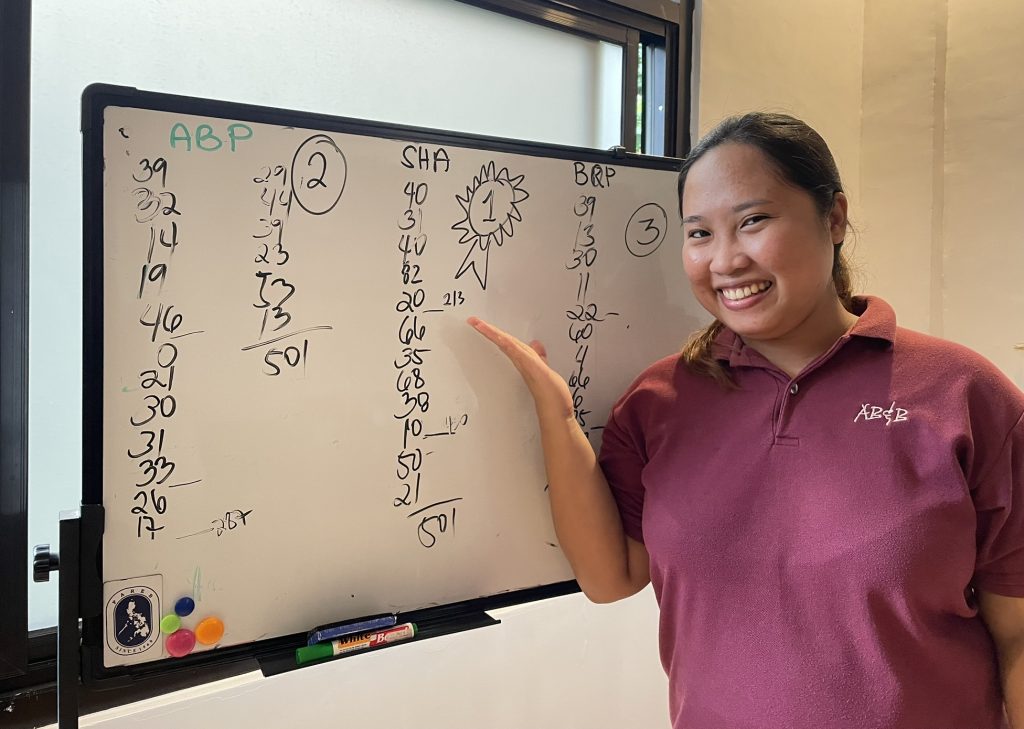 ABP
39
32
14
19
46
0
21
30
31
33
26
17
29
44
39
23
53
13
501
2
SHA
40
31
40
82
20
213
66
35
68
38
10
50
21
501
1
BRP
39
13
30
11
22
60
4
66
6
3
AB&B
FAREB
SINCE 1991
White